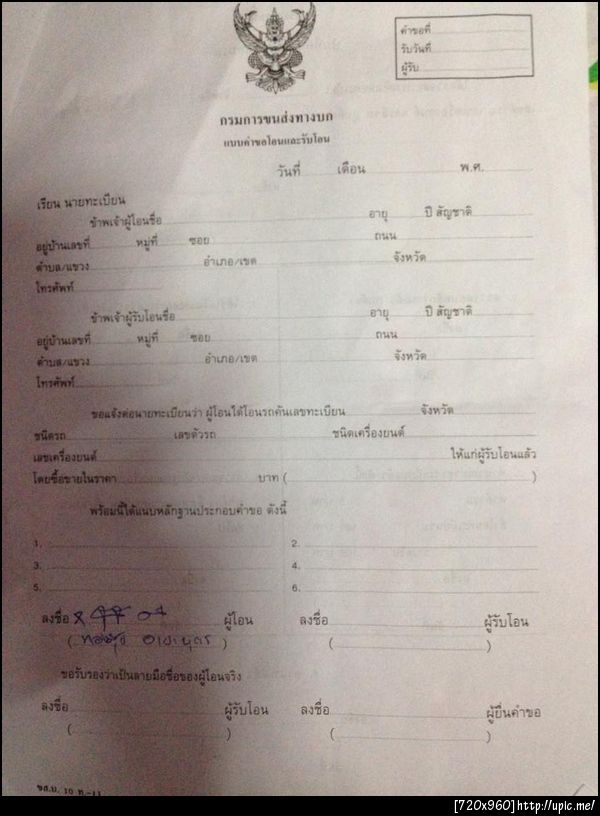 คำขอที่
รับวันที่
ผู้รับ
กรมการขนส่งทางบก
แบบคำขอโอนและรับโอน
วันที่ เดือน พ.ศ.
เรียน นายทะเบียน
ข้าพเจ้าผู้โอนชื่อ อายุ ปี สัญชาติ
อยู่บ้านเลขที่ หมู่ที่ ซอย ถนน
ตำบล/แขวง อำเภอ/เขต จังหวัด
โทรศัพท์
ข้าพเจ้าผู้รับโอนชื่อ อายุ ปี สัญชาติ
อยู่บ้านเลขที่ หมู่ที่ ซอย ถนน
ตำบล/แขวง อำเภอ/เขต จังหวัด
โทรศัพท์
ขอแจ้งต่อนายทะเบียนว่า ผู้โอนได้โอนรถคันเลขทะเบียน จังหวัด
ชนิดรถ เลขตัวรถ ชนิดเครื่องยนต์
เลขเครื่องยนต์ ให้แก่ผู้รับโอนแล้ว
โดยซื้อขายในราคา บาท ( )
พร้อมนี้ได้แนบหลักฐานประกอบคำขอ ดังนี้
1. 2.
3. 4.
5. 6.
ลงชื่อ ผู้โอน ลงชื่อ ผู้รับโอน
( ) ( )
ขอรับรองว่าเป็นลายมือชื่อของผู้โอนจริง
ลงชื่อ ผู้รับโอน ลงชื่อ ผู้ยื่นคำขอ
( ) ( )
[720x960] http://upic.me/